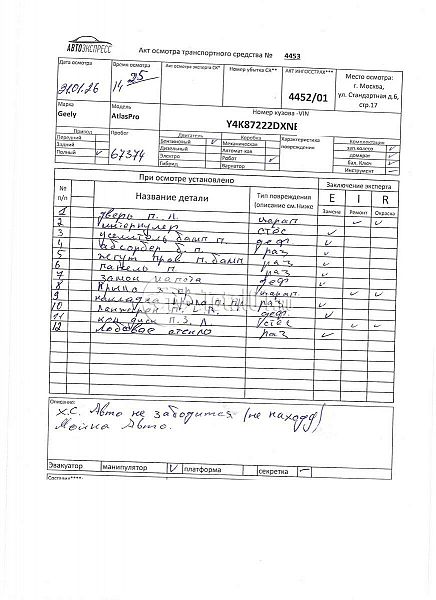 АВТОЭКСПРЕСС
Акт осмотра транспортного средства № 4453
Дата осмотра
21.01.26
Время осмотра
14 25
Акт осмотра эксперта СК*
Номер убытка СК**
АКТ ИНГОССТРАХ***
4452/01
Место осмотра:
г. Москва,
ул. Стандартная д.6,
стр.17
Марка
Geely
Модель
AtlasPro
Номер кузова -VIN
Y4K87222DXNE
Привод
Передний
Задний
Полный
Пробег
67374
Двигатель
Бензиновый
Дизельный
Электро
Гибрид.
Коробка
Механическая
Автомат кая
Робот
Вариатор
Характеристика
повреждений
Комплектация
зап.колесо
домкрат
бал. Ключ
Инструмент
При осмотре установлено
Заключение эксперта
№
п/п
Название детали
Тип повреждения
(описание см.Ниже
E I R
Замена Ремонт Окраска
1 дверь п. л. царап
2 интеркулер стес
3 усилитель бамп п. деф
4 абсорбер б. п. раз
5 жгут пров п. бамп раз
6 панель п. раз
7 замок капота деф
8 крыло царап
9 накладка крыла п. раз
10 деф
11 диск п. З. Л стес
12 Лобовое стекло раз
Описание:
х.с. Авто не заводится (не на ходу)
Мойка Авто.
Эвакуатор манипулятор платформа секретка
Состояние****: